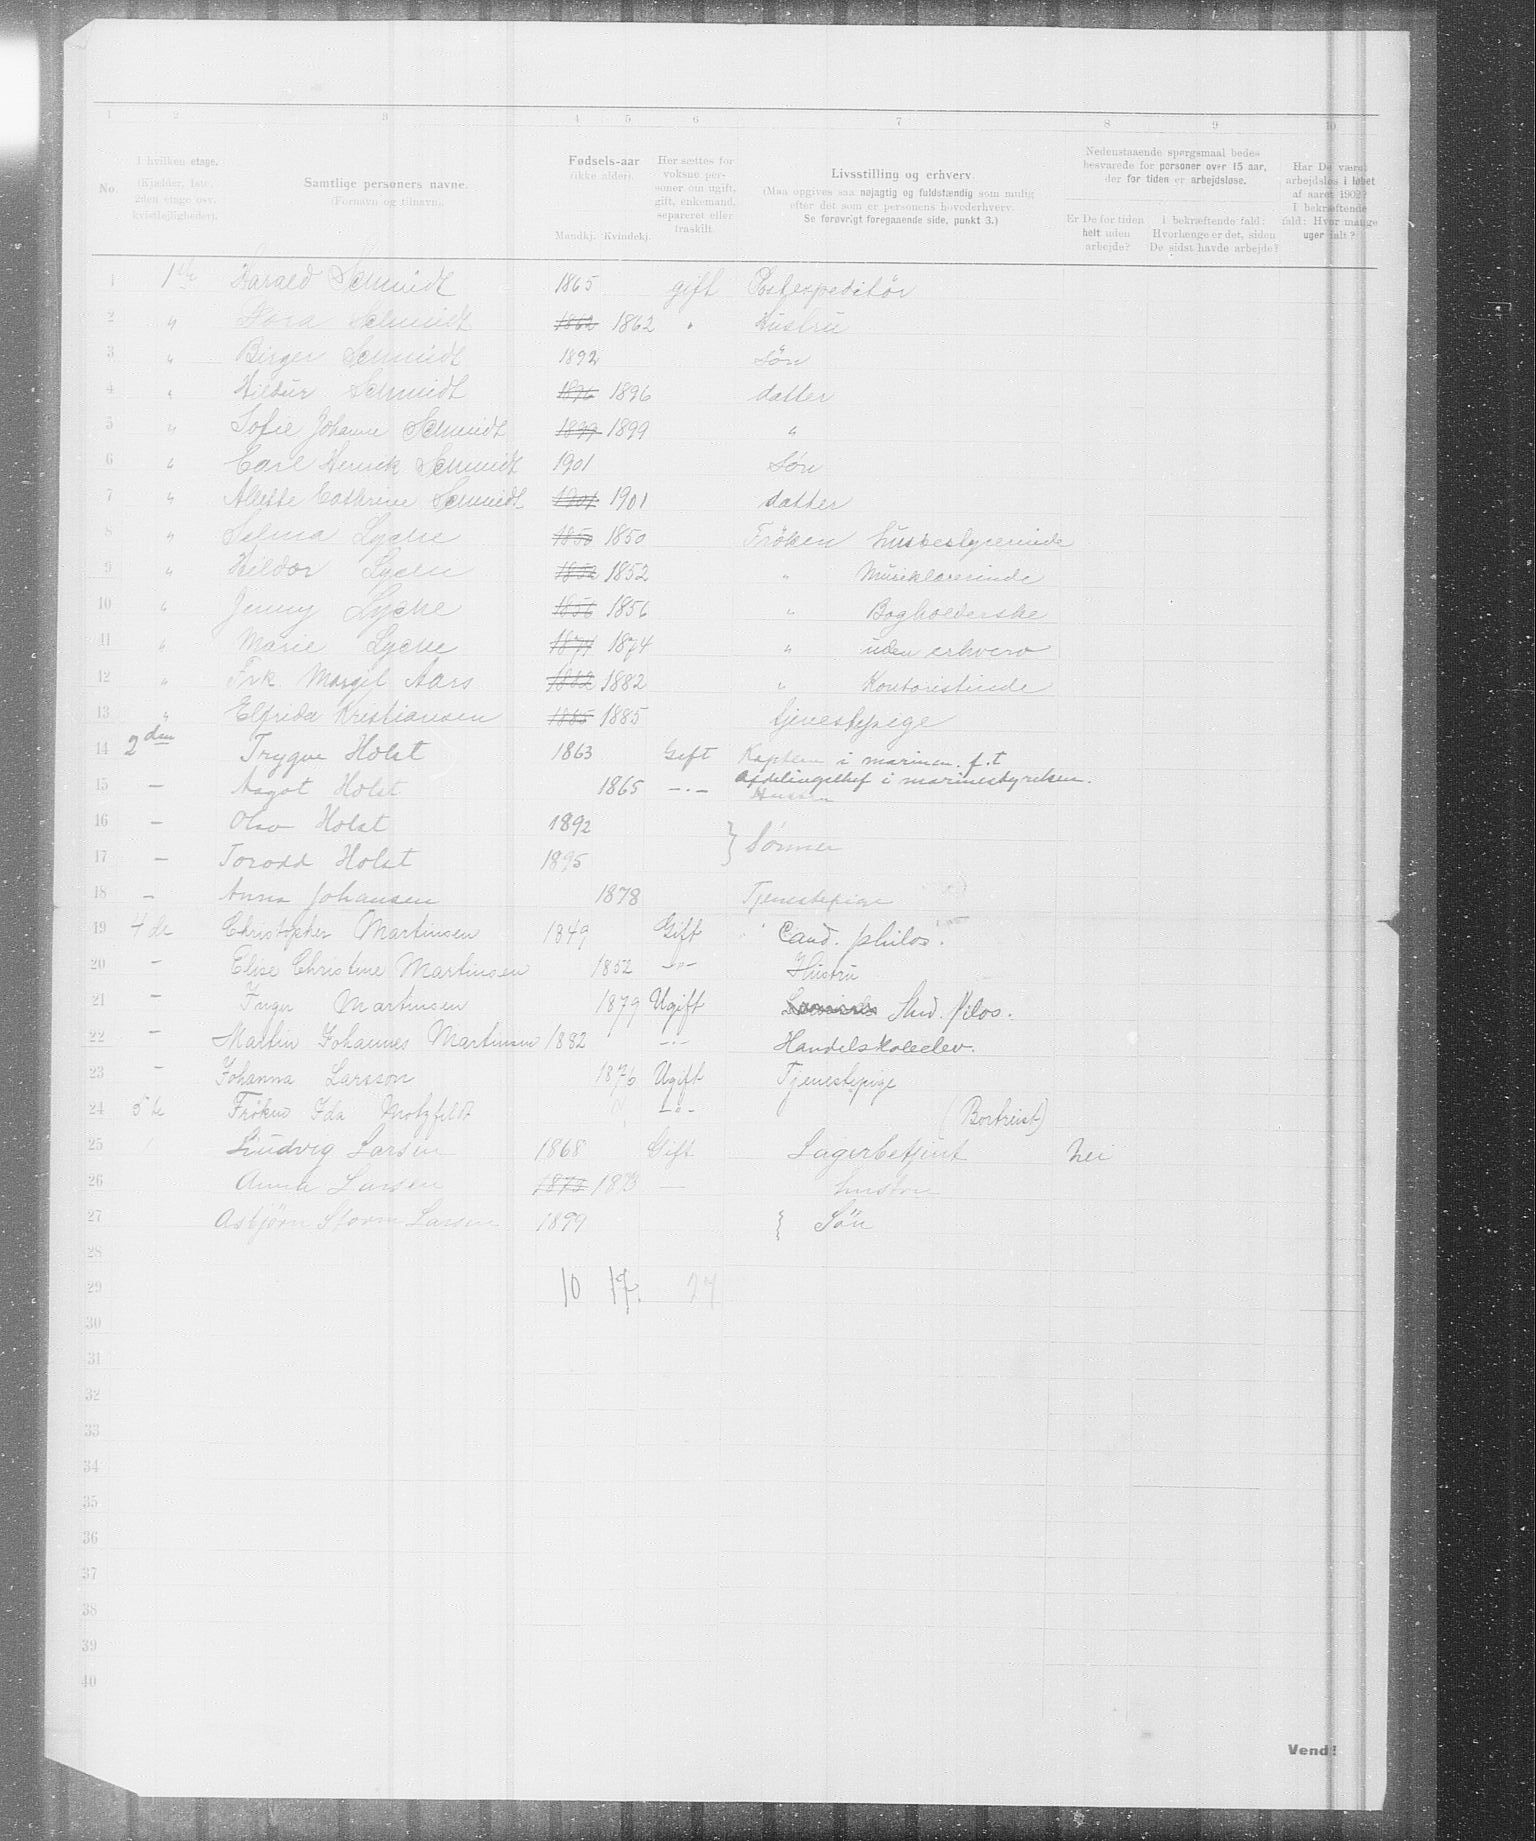 1 2 3 4 5 6 7 8 9 10
No.
I hvilken etage. (Kjælder, 1ste, 2den etage osv. kvistleiligheder).
Samtlige personers navne. (Fornavn og tilnavn).
Fødsels-aar (ikke alder). Mandkj. Kvindekj.
Her sættes for voksne personer om ugift, gift, enkemand, separeret eller fraskilt.
Livsstilling og erhverv.
(Maa opgives saa nøjagtig og fuldstændig som mulig efter det som er personens hovederhverv.
Se forøvrigt foregaaende side, punkt 3.)
Nedenstaaende spørgsmaal bedes besvarede for personer over 15 aar, der for tiden er arbejdsløse.
Er De for tiden helt uden arbejde?
I bekræftende fald: Hvorlænge er det, siden De sidst havde arbejde?
Har De været arbejdsløs i løbet af aaret 1902? I bekræftende fald: Hvor mange uger ialt?
1 1ste Harald Schmidt 1865 gift Postexpeditör
2 " Schmidt 1862 1862 " Hustru
3 " Birger Schmidt 1892 Sön
4 " Hildur Schmidt 1896 1896 datter
5 " Sofie Johanne Schmidt 1899 1899 "
6 " Carl Henrik Schmidt 1901 Sön
7 " Alette Cathrine Schmidt 1901 1901 datter
8 " Selma Lyche 1850 1850 Fröken husbestyrerinde
9 " Hildor Lyche 1852 1852 " Musiklærerinde
10 " Jenny Lyche 1856 1856 " Bogholderske
11 " Marie Lyche 1874 1874 " uden erhverv
12 " Frk Margit Aars 1882 1882 " Kontoristinde
13 " Elfrida Kristiansen 1885 1885 tjenestepige
14 2den Trygve Holst 1863 Gift Kaptein i marinen. f.t
Afdelingschef i marinestyrelsen.
15 — Aagot Holst 1865 —"— Hustru
16 — Olav Holst 1892 } Sønner
17 — Torodd Holst 1895
18 — Anna Johansen 1878 Tjenestepige
19 4de Christopher Martinsen 1849 Gift Cand. philos.
20 — Elise Christine Martinsen 1852 —"— Hustru
21 — Inger Martinsen 1879 Ugift Stud. filos.
22 — Martin Johannes Martinsen 1882 —"— Handelsskoleelev.
23 — Johanna Larsson 1876 Ugift Tjenestepige
24 5te Frøken Ida Motzfeldt —"— (Bortreist)
25 Ludvig Larsen 1868 Gift Lagerbetjent nei
26 Anna Larsen 1873 1873 — hustru
27 Asbjørn Storm Larsen 1899 } Søn
28
29 10 17. 27
30
31
32
33
34
35
36
37
38
39
40
Vend!